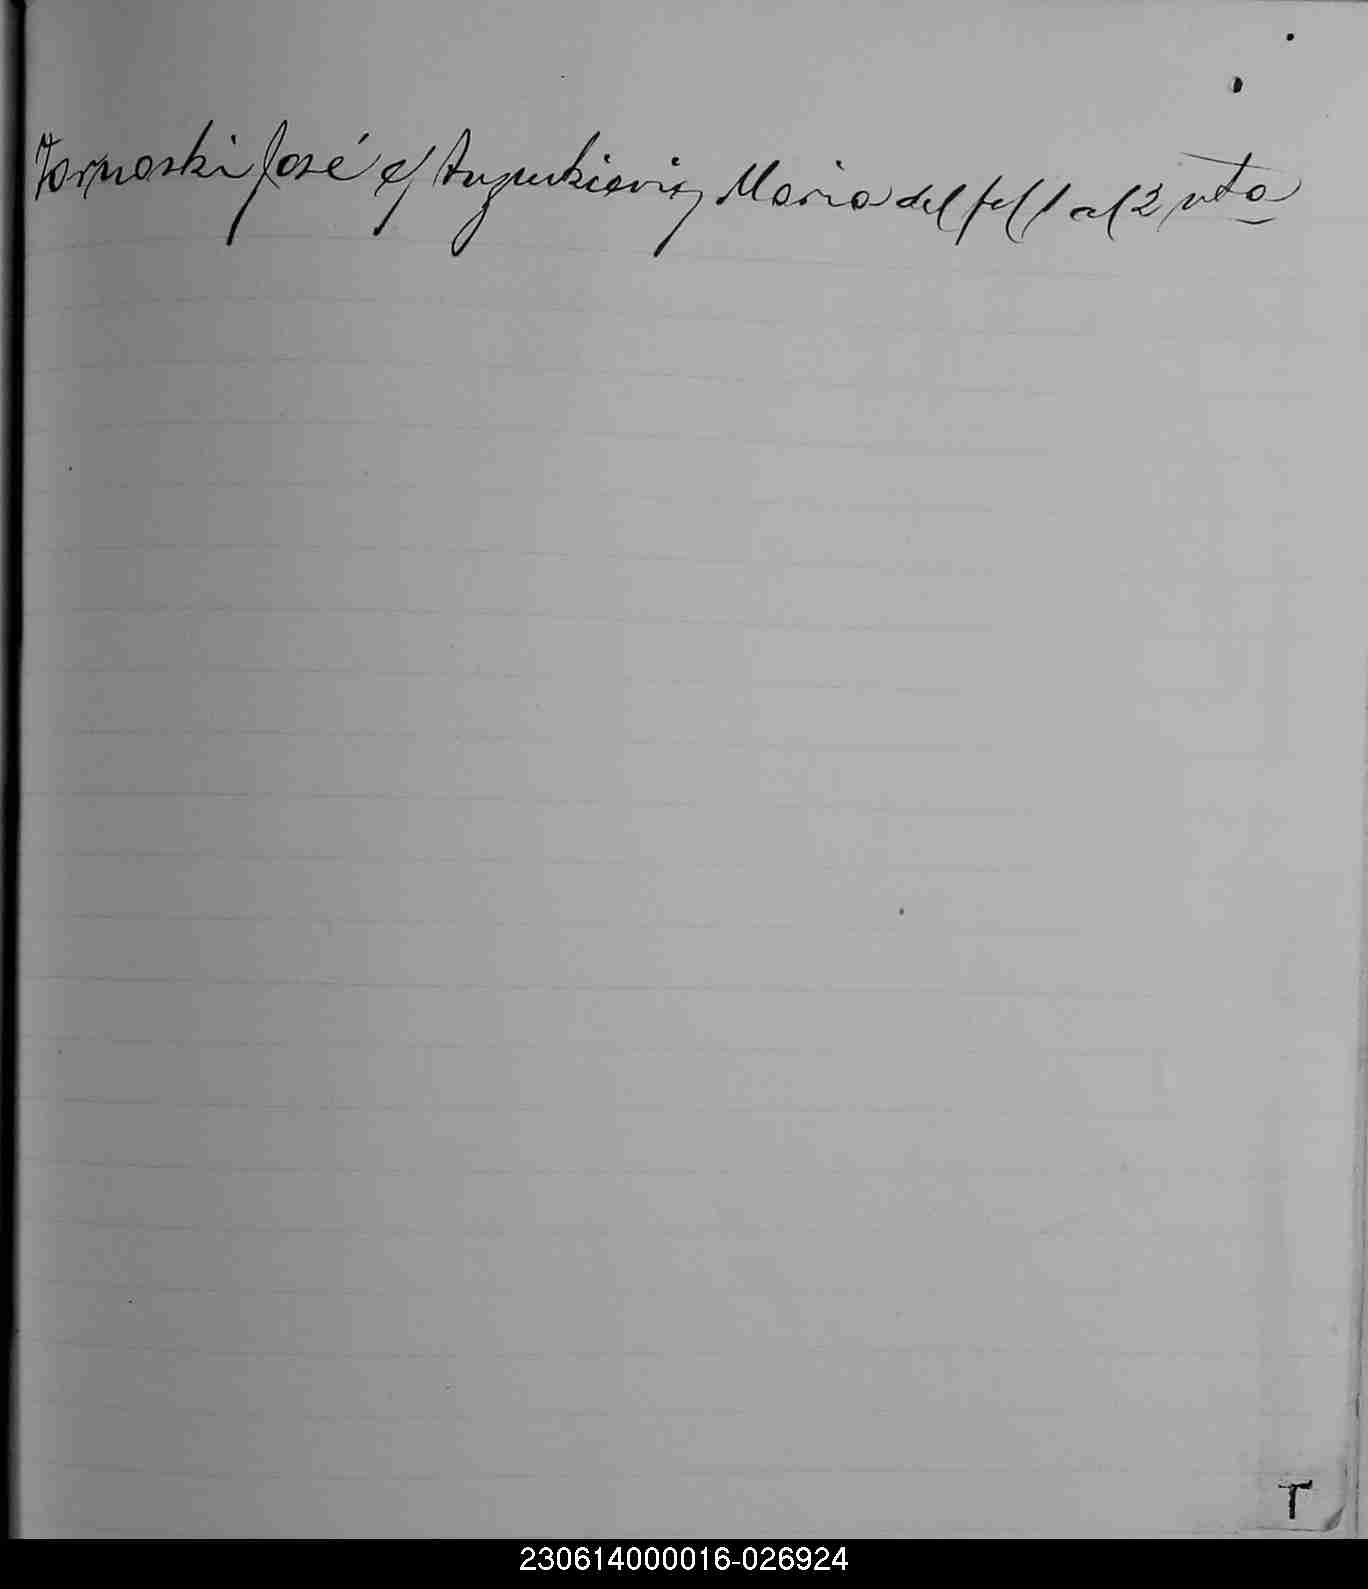 Tarnoski José c/ Augurkieviz Maria del fol 1 al 2 vta
T
230614000016-026924